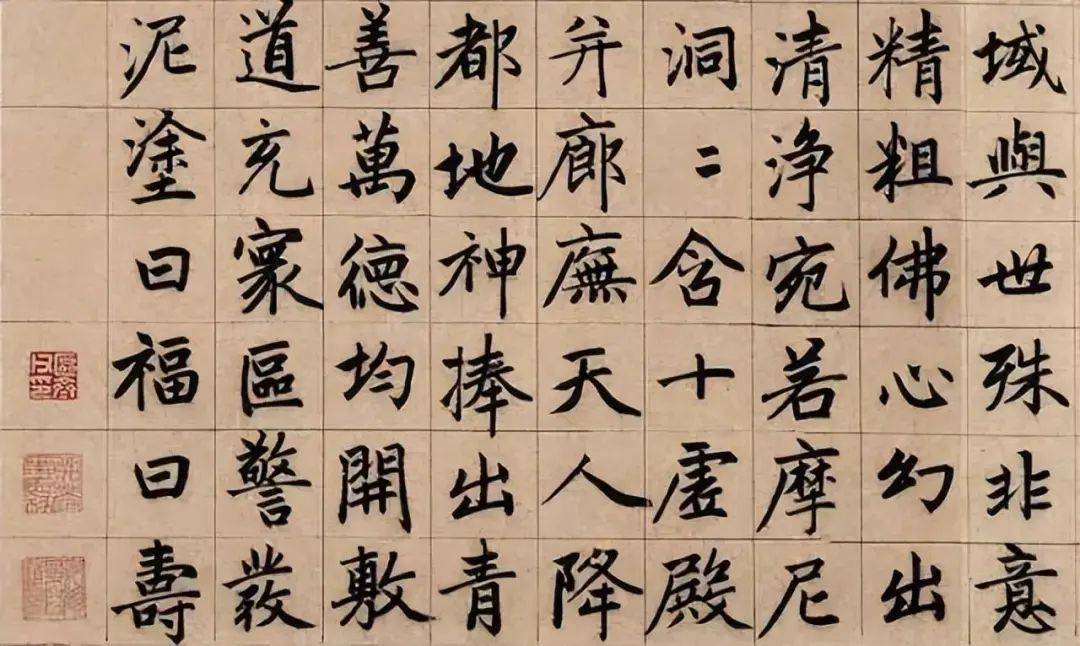 域與世殊非意
精粗佛心幻出
清浄宛若摩尼
洞〻含十虛殿
并廊廡天人降
都地神捧出青
善萬徳均開敷
道充寰區警發
泥塗曰福曰壽